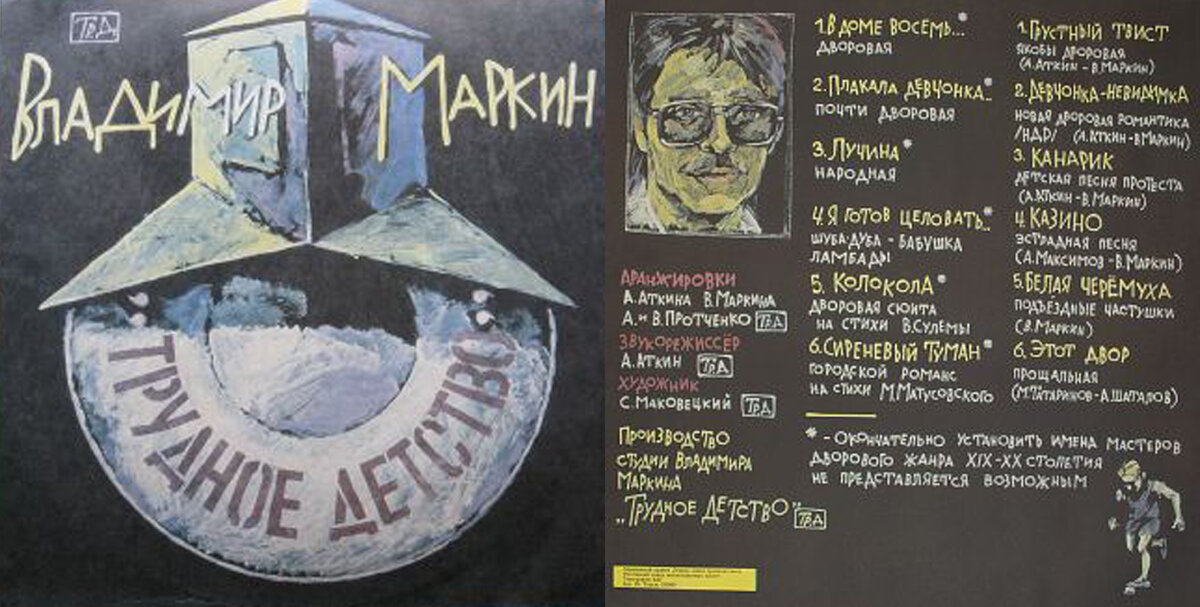 Тр.Д.
Владимир Маркин
Трудное детство
Аранжировки
А.Аткина В.Маркина
А. и В.Протченко Тр.Д
Звукорежиссёр
А.Аткин Тр.Д
Художник
С.Маковецкий Тр.Д
Производство
студии Владимира
Маркина
„Трудное Детство" Тр.Д
1.В доме восемь...*
дворовая
2.Плакала девчонка...*
почти дворовая
3.Лучина*
народная
4.Я готов целовать...*
шуба-дуба - бабушка
ламбады
5. Колокола*
дворовая сюита
на стихи В.Сулемы
6.Сиреневый туман*
городской романс
на стихи М.Матусовского
1.Грустный твист
якобы дворовая
(А.Аткин-В.Маркин)
2.Девчонка-невидимка
новая дворовая романтика
/НДР/ (А.Аткин-В.Маркин)
3. Канарик
детская песня протеста
(А.Аткин-В.Маркин)
4.Казино
эстрадная песня
(А.Максимов-В.Маркин)
5.Белая черёмуха
подъездные частушки
(В.Маркин)
6. Этот двор
прощальная
(М.Татаринов-А.Шаталов)
* - окончательно установить имена мастеров
дворового жанра XIX-XX столетия
не представляется возможным